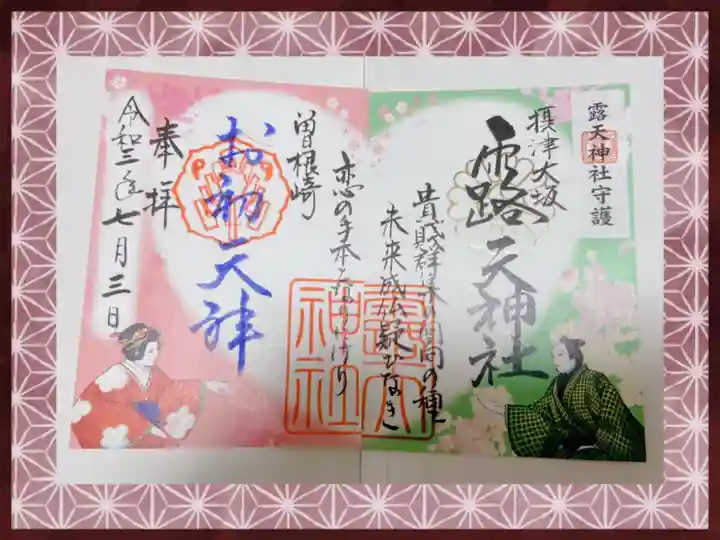 露天神社守護
摂津大坂
露天神社
貴賎群集の回向の種
未来成仏疑ひなき
恋の手本となりにけり
曽根崎
お初天神
奉拝
令和三年七月三日
露天
神社